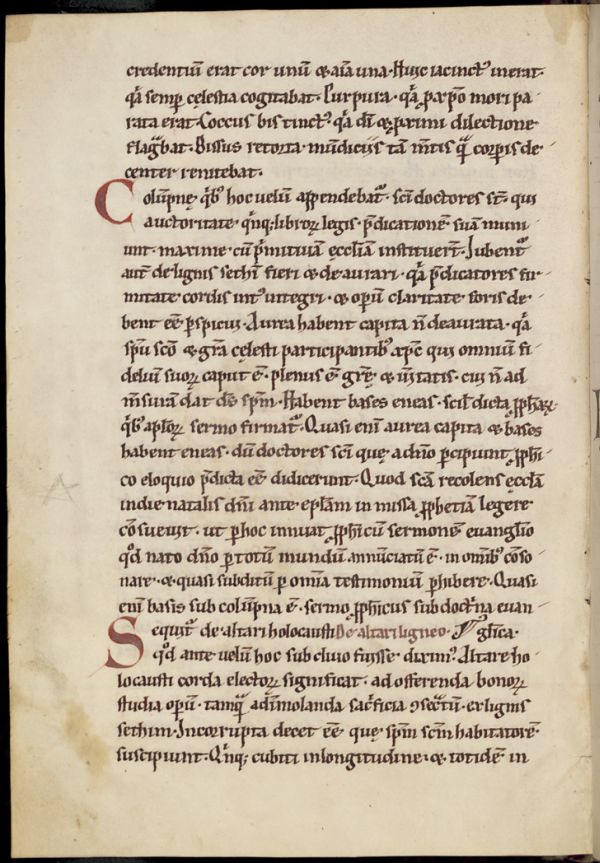 credentiũ erat cor unũ ⁊ aĩa una. Huic iacinctꝰ inerat.
q̃a semꝑ cęlestia cogitabat. Purpura. q̃a ꝓ xp̃o mori pa
rata erat. Coccus bis tinctꝰ. q̃a dĩ ⁊ ꝓximi dilectione
flag̃bat. Bissus retorta. mũdiciis tã m̃tis q̃ corꝑis de
center renitebat.
Colũpnę qͥbꝰ hoc uelũ appendebat᷑. sc̃i doctores st̃. qui
auctoritate qͥnq; libroꝝ legis. p̃dicationẽ suã muni
unt. maxime cũ pͥmitiuã ęccl̃iã instituer̃t. Iubent᷑
aut̃ de lignis sethĩ fieri ⁊ deaurari. q̃a p̃dicatores fir
mitate cordis intꝰ integri. ⁊ oꝑũ claritate foris de
bent eẽ ꝑspicui. Aurea habent capita ñ deaurata. q̃a
sp̃u sc̃o ⁊ gr̃a cęlesti participantibꝰ xp̃c qui omniũ fi
deliũ suoꝝ caput ẽ. plenus ẽ gr̃ę ⁊ ũitatis. cui ñ ad
m̃surã dat ds̃ sp̃m. Habent bases eneas. scil̃ dicta ꝓph̃aꝝ.
qͥbꝰ ap̃loꝝ sermo firmat᷑. Quasi eni aurea capita ⁊ bases
habent eneas. dũ doctores sc̃i quę a dño ꝑcipiunt ꝓph̃i
co eloquio p̃dicta eẽ didicerunt. Quod sc̃a recolens ęccl̃a
in die natalis dñi ante ep̃lam in missa ꝓphetiã legere
cõsueuit. ut ꝑ hoc innuat ꝓph̃icũ sermonẽ euanglio
qd̃ nato dño ꝑ totũ mundũ annunciatũ ẽ. in omĩbꝰ cõso
nare. ⁊ quasi subditũ ꝑ omĩa testimoniũ ꝑhibere. Quasi
eni basis sub colũpna ẽ. sermo ꝓph̃icus sub doctͥna euan
Sequit᷑ de altari holocausti De altari ligneo. glͥca.
qd̃ ante uelũ hoc sub diuo fuisse diximꝰ. Altare ho
locausti corda electoꝝ significat. ad offerenda bonoꝝ
studia oꝑũ. tamq̃ ad imolanda sacͥficia ꝯsecͣtũ. ex lignis
sethim. Incorrupta decet eẽ quę sp̃m sc̃m habitatorẽ
suscipiunt. Qͥnq; cubiti in longitudine. ⁊ totidẽ in